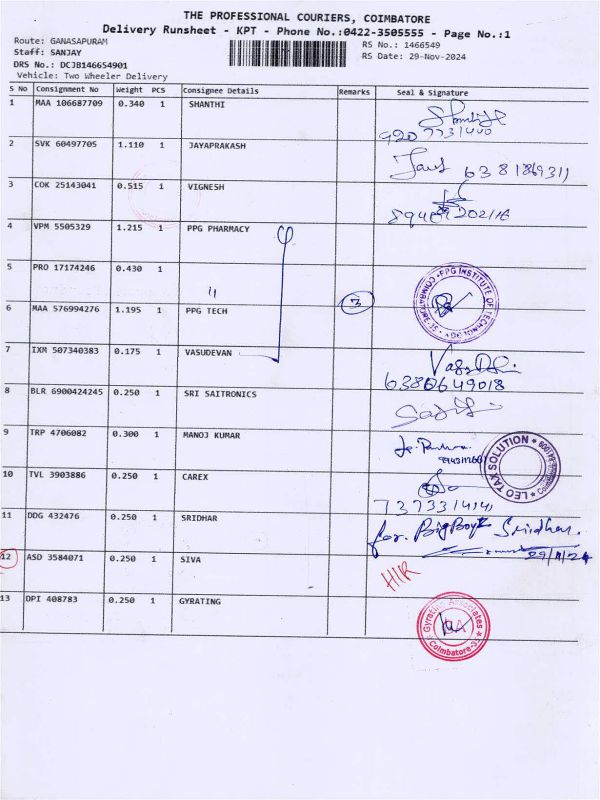 THE PROFESSIONAL COURIERS, COIMBATORE
Delivery Runsheet - KPT - Phone No.:0422-3505555 - Page No.:1
Route: GANASAPURAM
RS No.: 1466549
Staff: SANJAY
RS Date: 29-Nov-2024
DRS No.: DCJB146654901
Vehicle: Two Wheeler Delivery
S No Consignment No Weight PCS Consignee Details Remarks Seal & Signature
1 MAA 106687709 0.340 1 SHANTHI
2 SVK 60497705 1.110 1 JAYAPRAKASH
3 COK 25143041 0.515 1 VIGNESH
4 VPM 5505329 1.215 1 PPG PHARMACY
5 PRO 17174246 0.430 1 "
PPG INSTITUTE OF TECHNOLOGY COIMBATORE-35
6 MAA 576994276 1.195 1 PPG TECH 3
7 IXM 507340383 0.175 1 VASUDEVAN
8 BLR 6900424245 0.250 1 SRI SAITRONICS
9 TRP 4706082 0.300 1 MANOJ KUMAR
LEO TAX SOLUTION
10 TVL 3903886 0.250 1 CAREX
11 DDG 432476 0.250 1 SRIDHAR for. BigBoyz Sridhar.
29/11/24
12 ASD 3584071 0.250 1 SIVA HIR
13 DPI 408783 0.250 1 GYRATING
Gyrating Associates GA Coimbatore-35